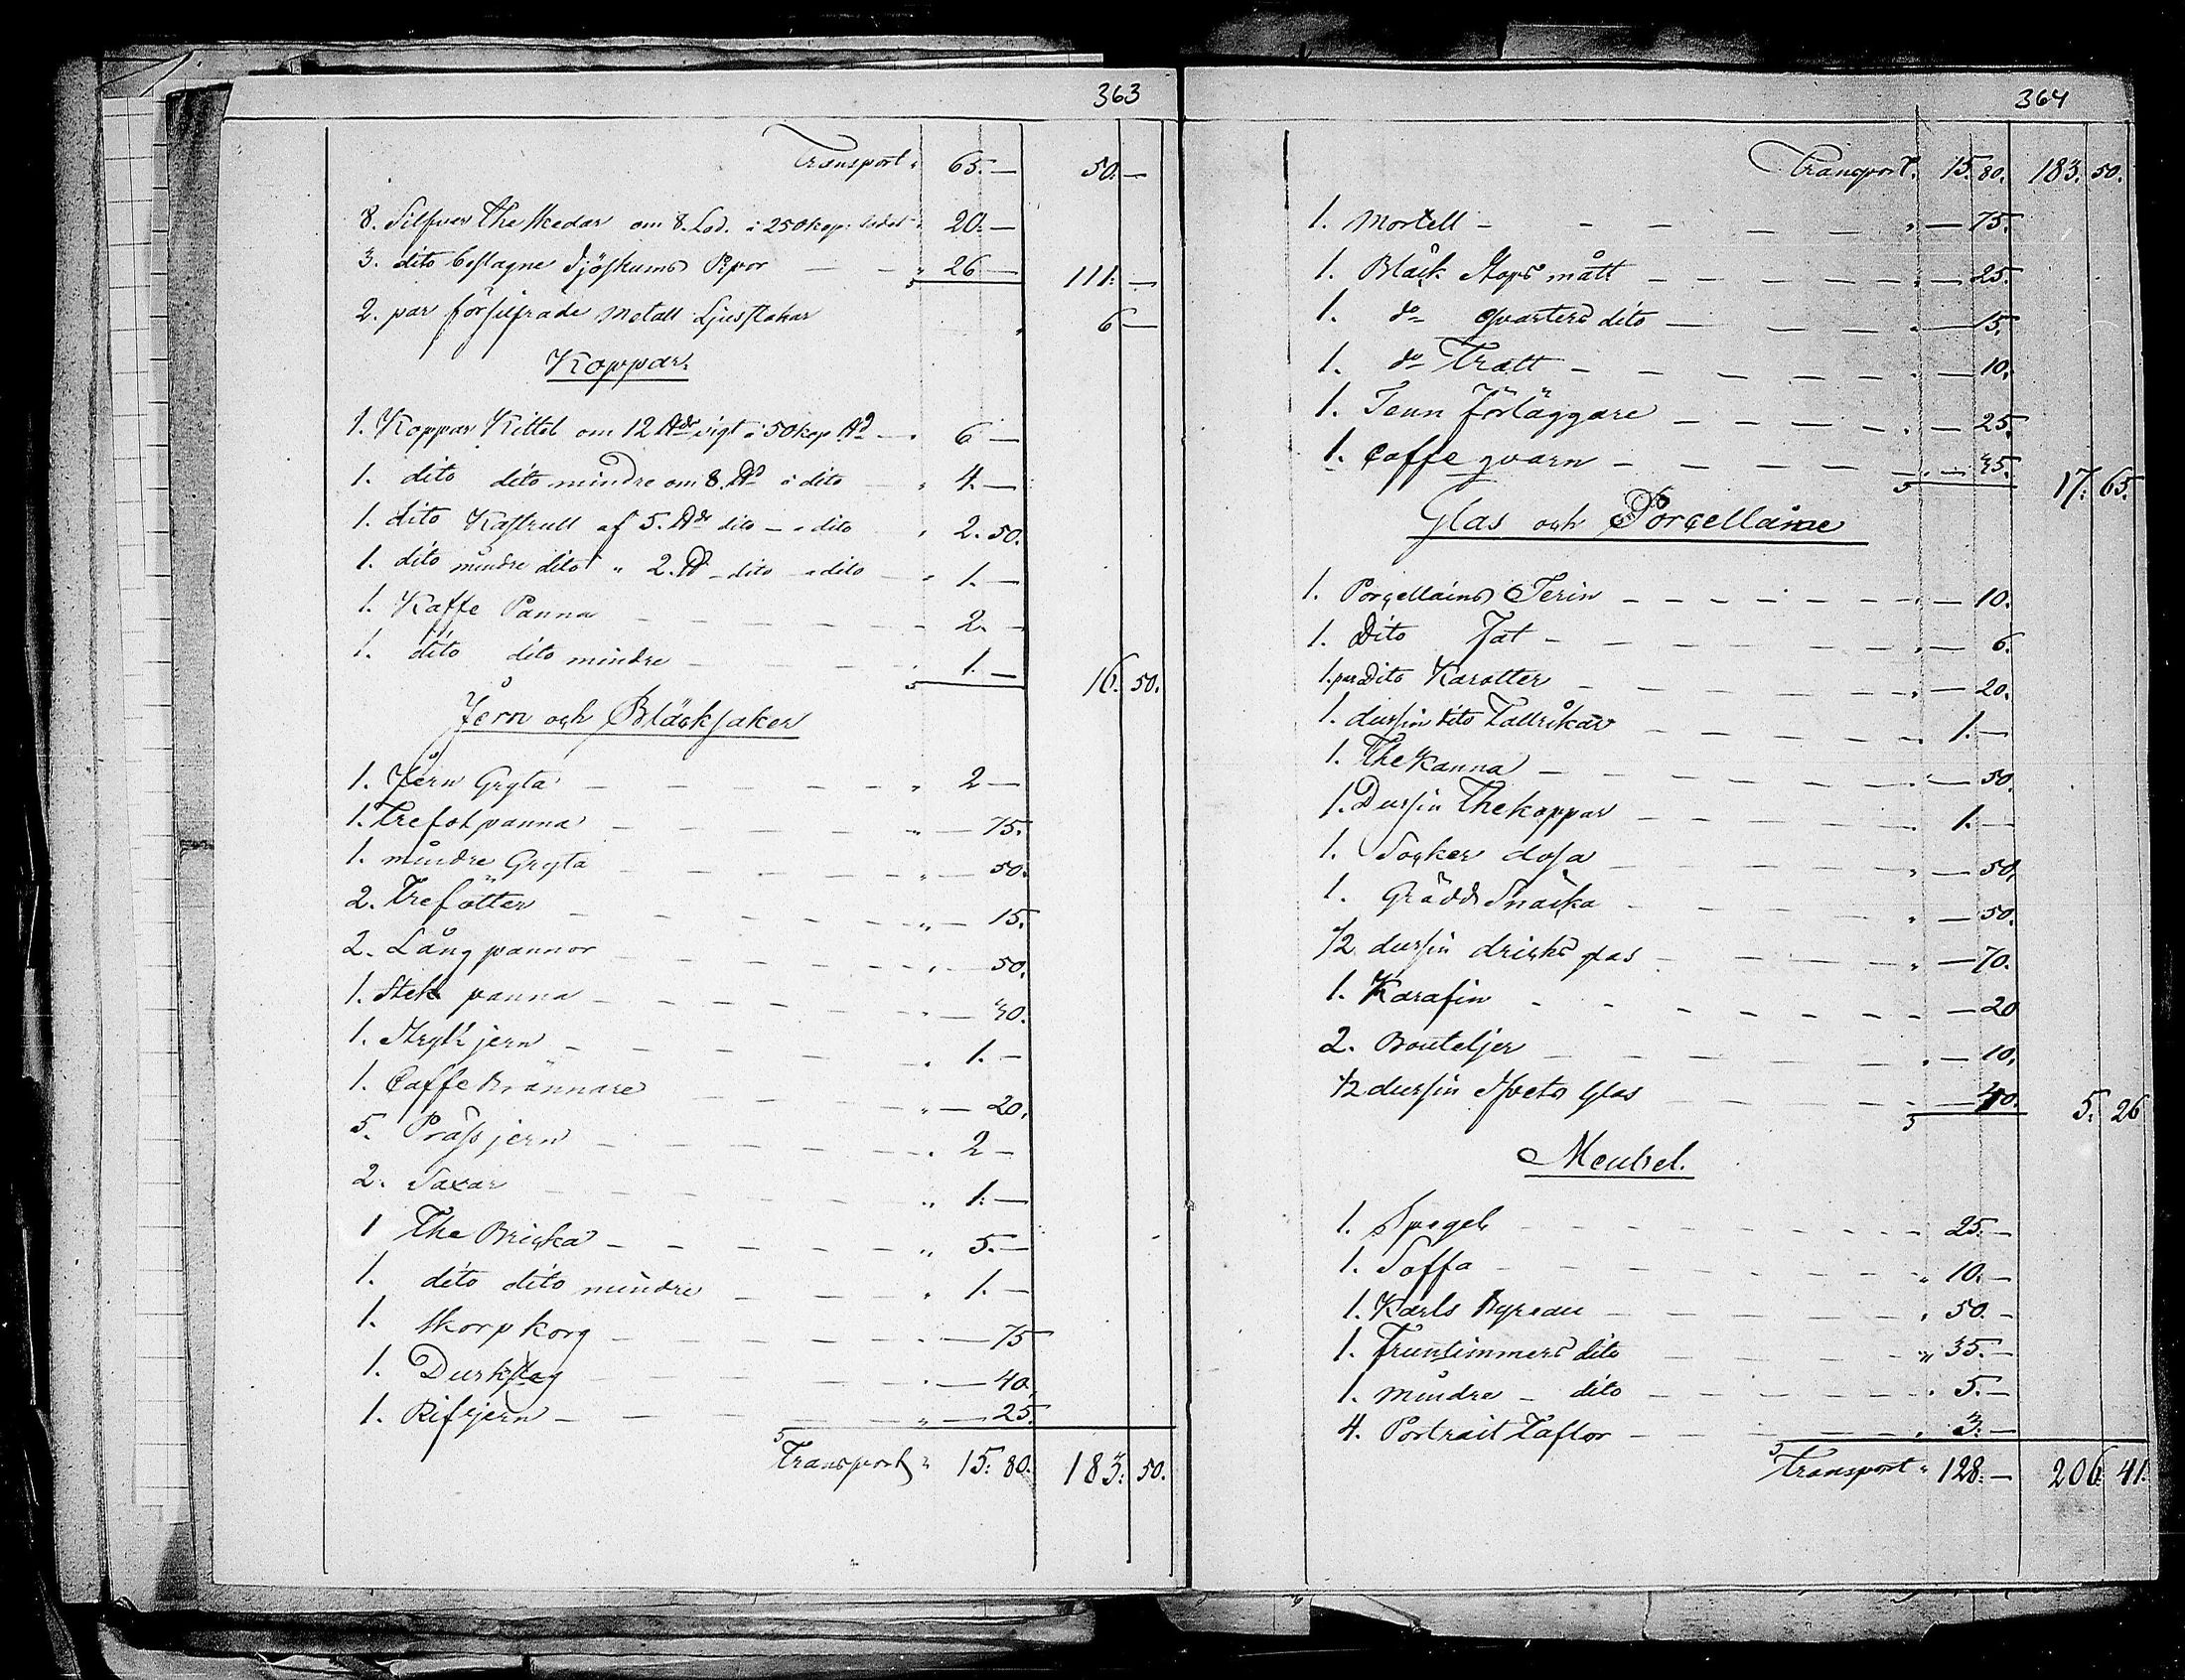 363
Transport " 65. — 50. —
8. Silfver Theskedar om 8. Lod. à 250 kop: lodet " 20. —
3. dito beslagne Sjöskums Pipor — — " 26 — 111. —
2. par försilfrade Metall Ljusstakar " 6 —
Koppar.
1. Koppar Kittel om 12 vigt à 50 kop — " 6 —
1. dito dito mindre om 8. à dito — " 4. —
1. dito Kastrull af 5. dito — à dito " 2. 50.
1. dito mindre dito " 2. dito à dito — " 1. —
1. Kaffe Panna — — — — — 2. —
1. dito dito mindre — — — — " 1. — 16. 50.
Jern och Bläcksaker
1. Jern Gryta — — — — — " 2 —
1. Trefot panna — — — — — " — 75.
1. mindre Gryta — — — — — " — 50.
2. Trefötter — — — — — " — 15.
2. Lång pannor — — — — — " — 50.
1. Stek panna — — — — — " — 30.
1. Strykjern — — — — — " 1. —
1. Caffe Brännare — — — — " — 20.
5. Präss jern — — — — — " 2 —
2. Saxar — — — — — " 1. —
1 The Bricka — — — — — " 5. —
1. dito dito mindre — — — " 1. —
1. Skorpkorg — — — — — " — 75
1. Durkslag — — — — — " — 40.
1. Rifjern — — — — — " — 25.
Transport " 15. 80. 183. 50.
364
Transport. 15. 80. 183. 50.
1. Mortell — — — — — " — 75.
1. Bläck Stops mått — — — — — " — 25.
1. do qvarters dito — — — — " — 15.
1. do Tratt — — — — — " — 10.
1. Tenn förläggare — — — — " — 25.
1. Caffe qvarn — — — — — " — 35. 17. 65.
Glas och Porcellaine
1. Porcellains Terin — — — — — " — 10.
1. Dito Fat — — — — — " — 6.
1. par dito Karotter — — — — " — 20.
1. dussin dito Tallrikar — — — — " 1. —
1. The Kanna — — — — — " — 50.
1. Dussin Thekoppar — — — — " 1. —
1. Socker dosa — — — — — " — 50.
1. Grädd Snäcka — — — — — " — 50.
1/2 dussin dricks glas — — — — " — 70.
1. Karafin — — — — — — 20
2. Bouteljer — — — — — " — 10.
1/2 dussin Spets Glas — — — — — 40. 5. 26
Meubel.
1. Spegel — — — — — 25. —
1. Soffa — — — — — " 10. —
1. Karls Byreau — — — — " 50. —
1. Fruntimmers dito — — — — " 35. —
1. mindre — dito — — — — " 5. —
4. Portrait Taflor — — — — " 3. —
Transport " 128. — 206. 41.